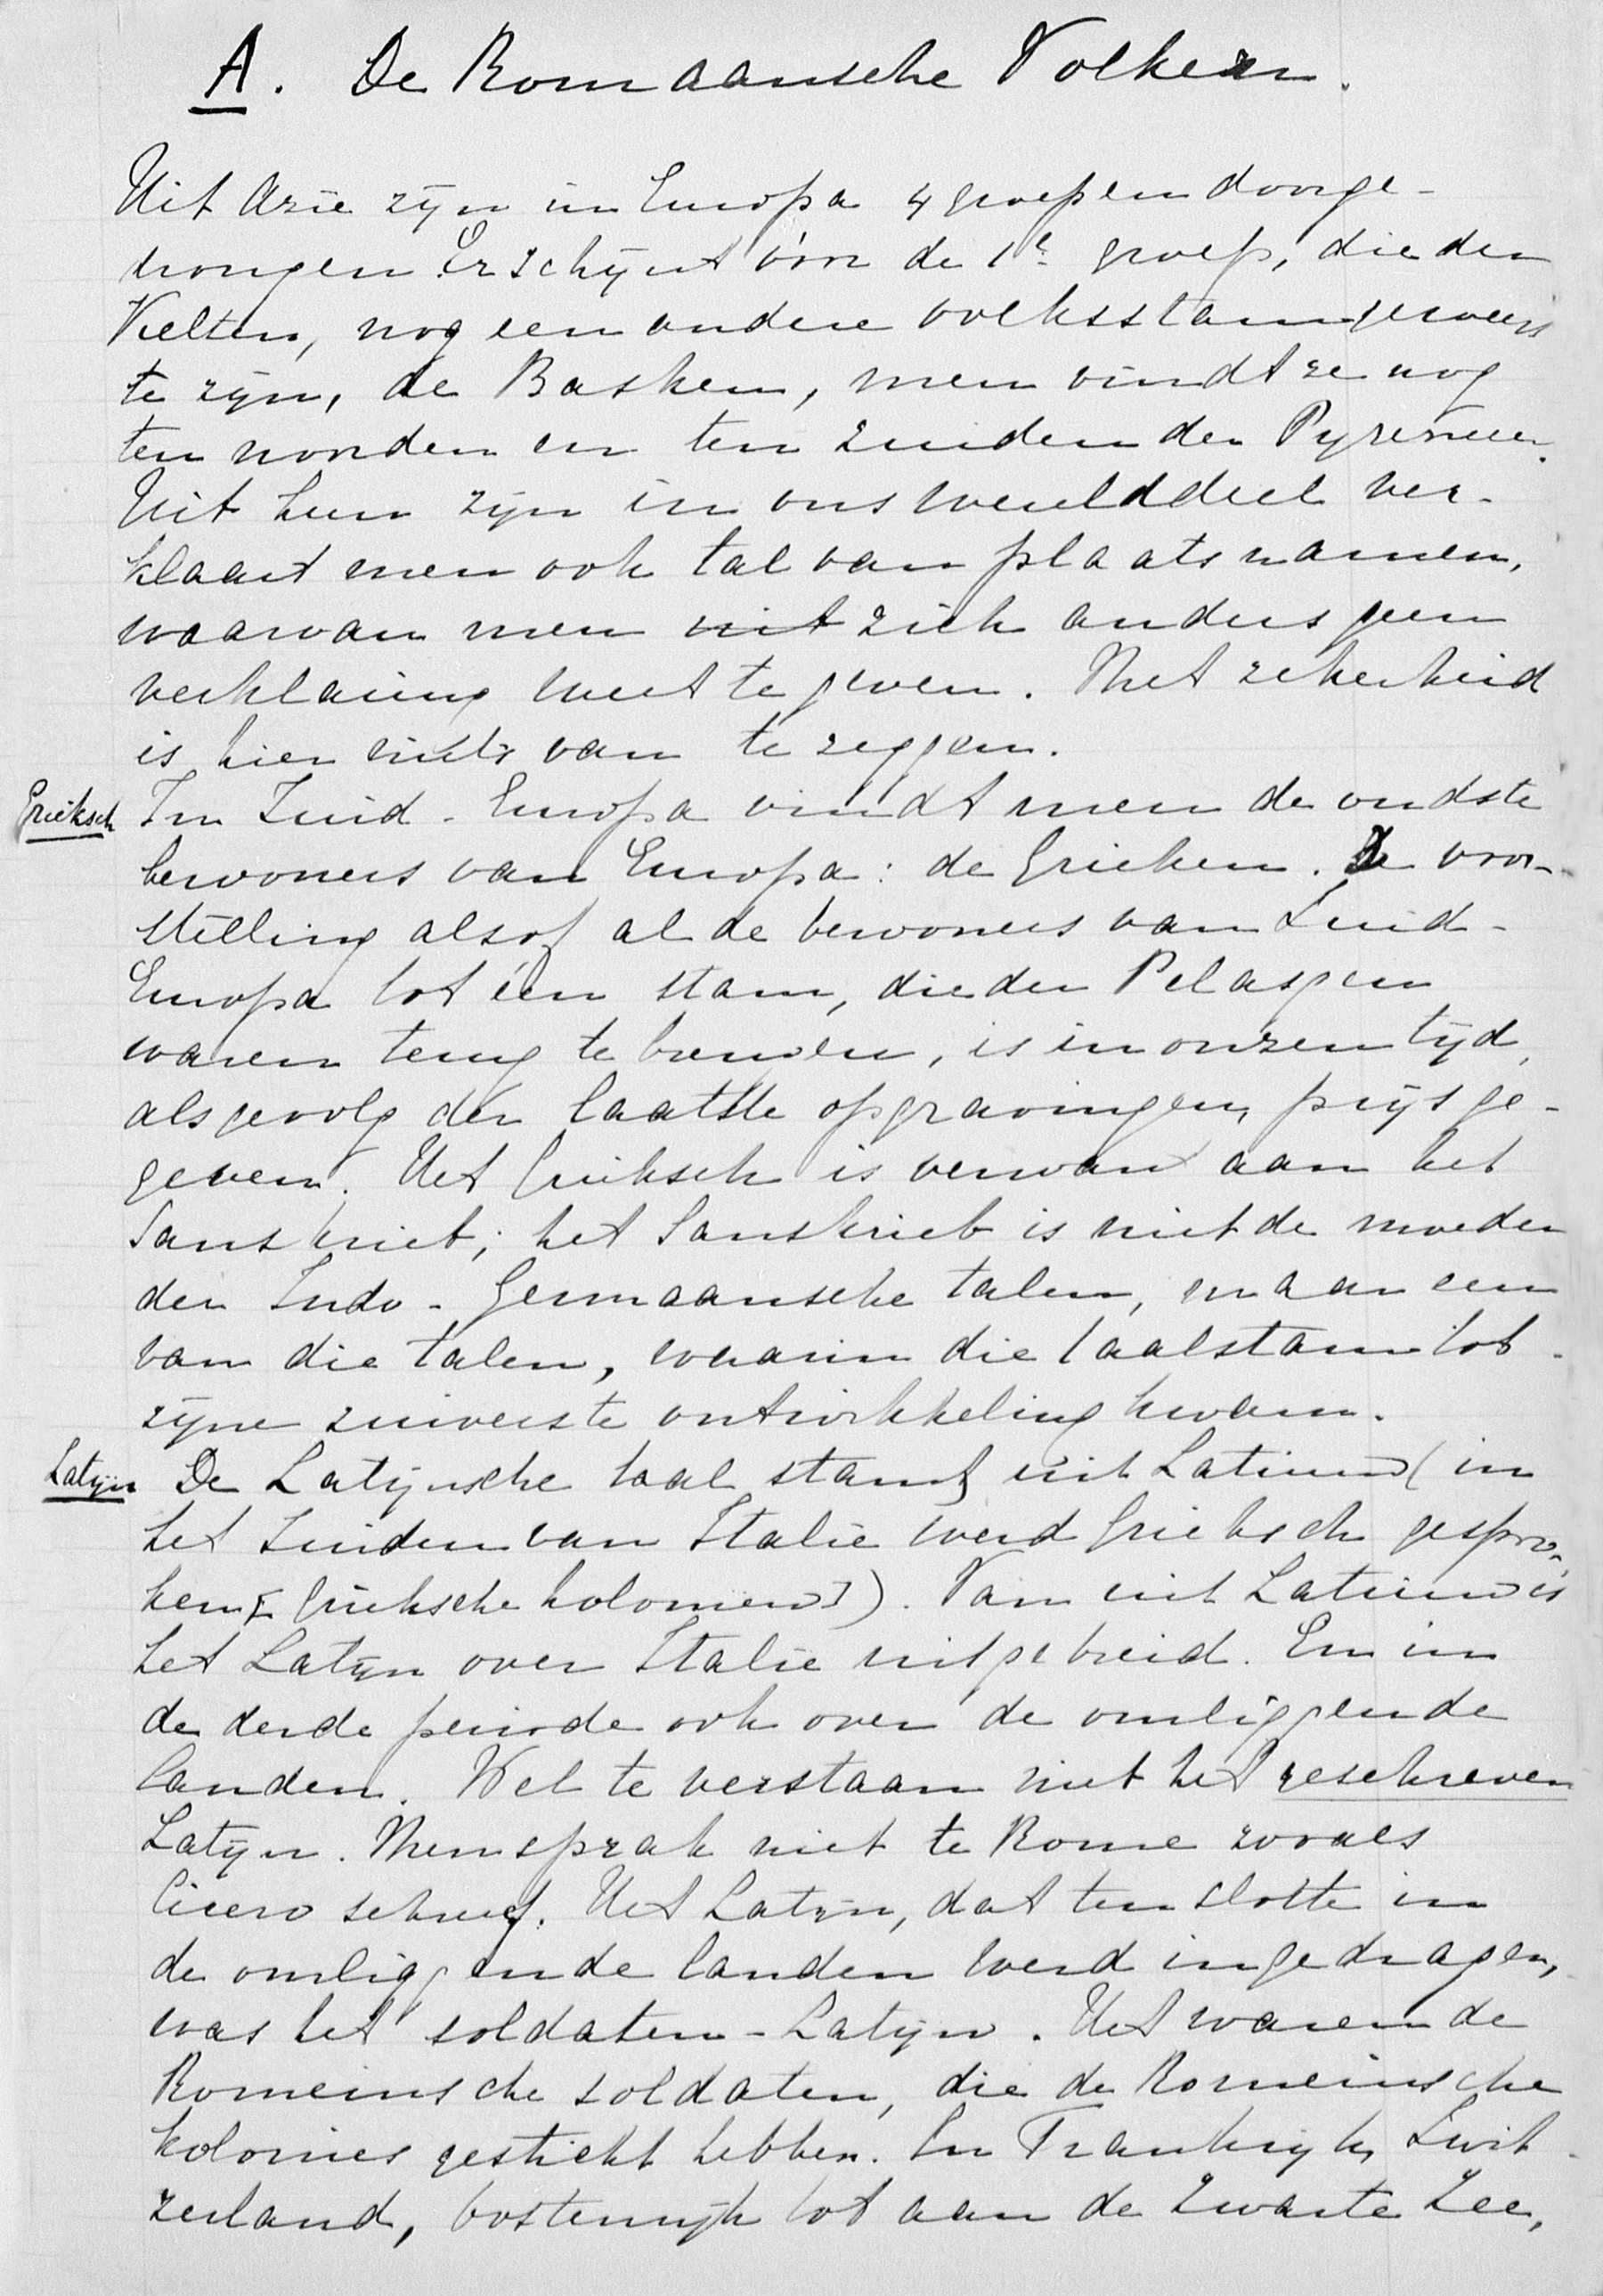 A. De Romaansche Volkeren.
Uit Azië zijn in Europa 4 groepen doorge-
drongen. Er schijnt vóór de 1e groep, die der
Kelten, nog een andere volksstam geweest
te zijn, de Basken, men vindt ze nog
ten noorden en ten zuiden der Pyreneeën.
Uit hun zijn in ons werelddeel ver-
klaart men ook tal van plaatsnamen,
waarvan men uit zich anders geen
verklaring weet te geven. Met zekerheid
is hier niets van te zeggen.
Grieksch In Zuid-Europa vindt men de oudste
bewoners van Europa: de Grieken. De voor-
stelling alsof al de bewoners van Zuid-
Europa tot één stam, die der Pelasgen
waren terug te brengen, is in onzen tijd,
als gevolg der laatste opgravingen, prijsge-
geven. Het Grieksch is verwant aan het
Sanskriet; het Sanskriet is niet de moeder
der Indo-Germaansche talen, maar een
van die talen, waarin die taalstam tot
zijne zuiverste ontwikkeling kwam.
Latijn De Latijnsche taal stamt uit Latium (in
het Zuiden van Italië werd Grieksch gespro-
ken [Grieksche koloniën]). Van uit Latium is
het Latijn over Italië uitgebreid. En in
de derde periode ook over de omliggende
landen. Wel te verstaan niet het geschreven
Latijn. Men sprak niet te Rome zooals
Cicero schreef. Het Latijn, dat ten slotte in
de omliggende landen werd ingedragen,
was het soldaten-Latijn. Het waren de
Romeinsche soldaten, die de Romeinsche
kolonies gesticht hebben. In Frankrijk, Zwit-
zerland, Oostenrijk tot aan de Zwarte Zee,